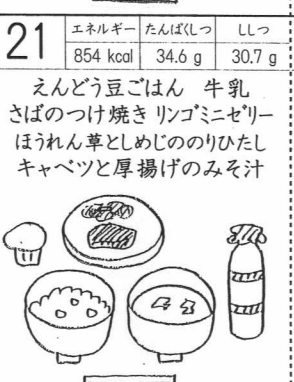 21
エネルギー たんぱくしつ ししつ
854 kcal 34.6 g 30.7 g
えんどう豆ごはん 牛乳
さばのつけ焼き リンゴミニゼリー
ほうれん草としめじののりひたし
キャベツと厚揚げのみそ汁